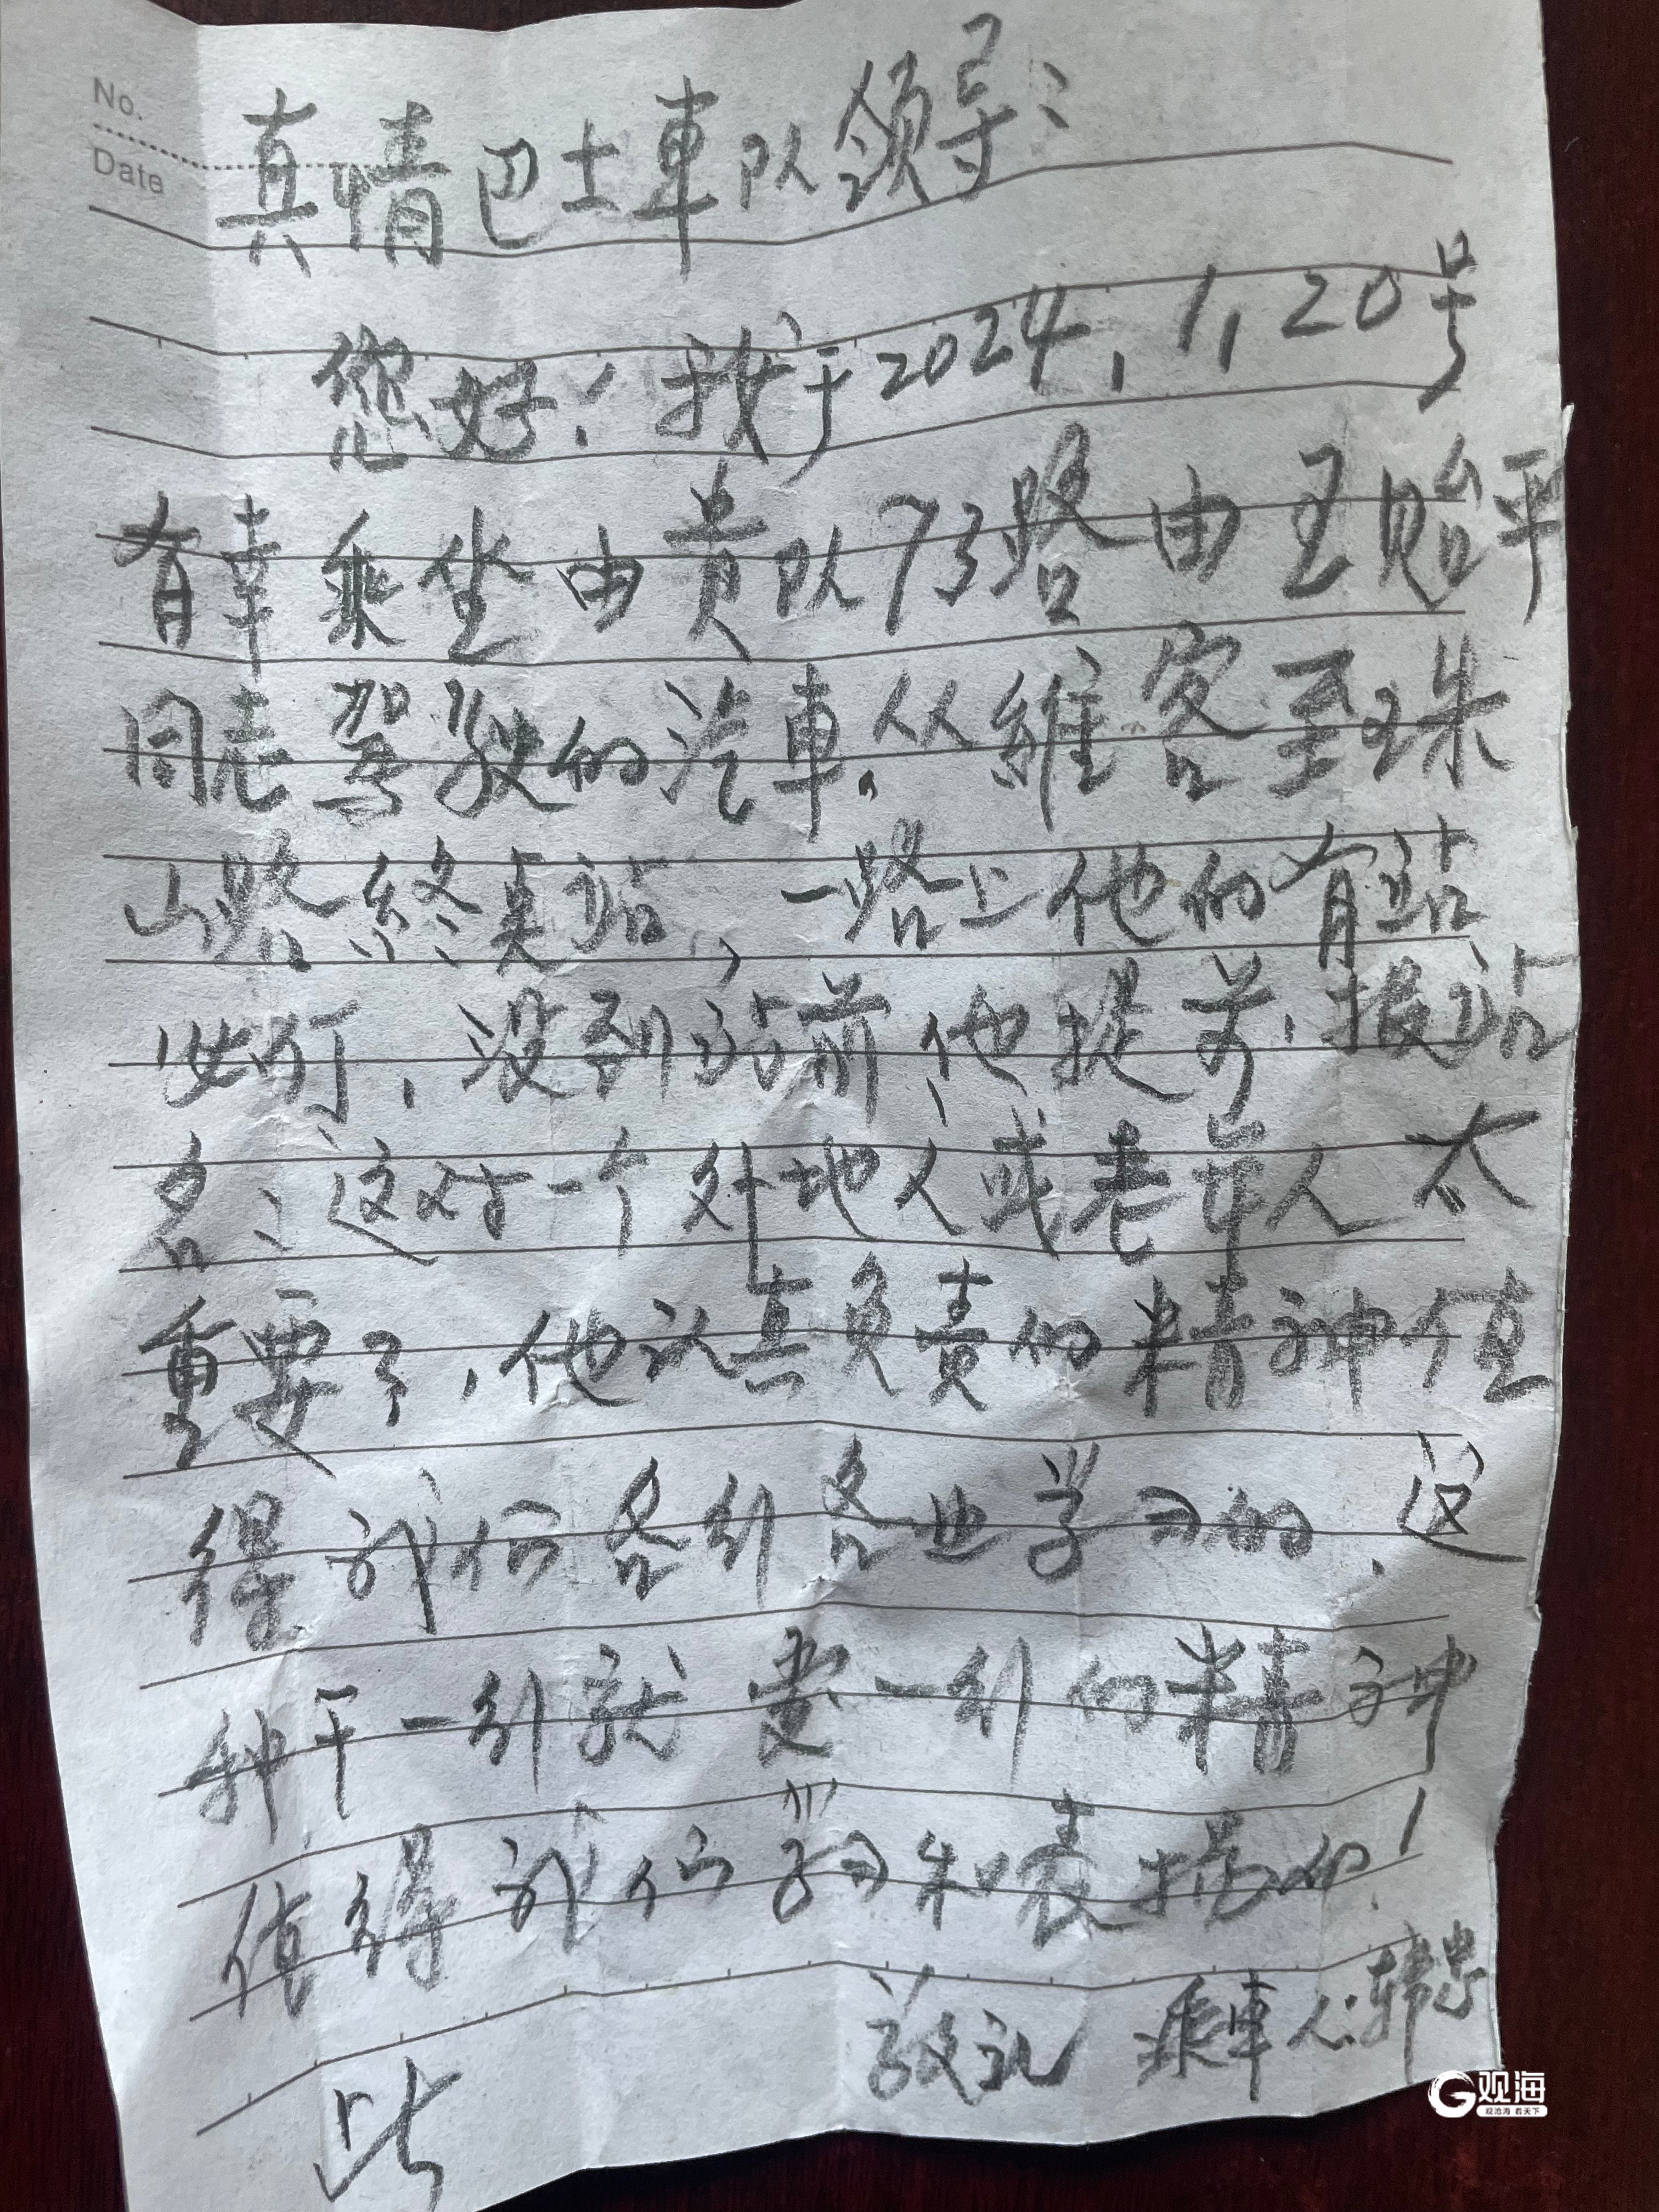 No.
Date
真情巴士車队领导:
您好!我于2024,1,20号
有幸乘坐由贵队73路由王贻平
同志驾驶的汽車。从維客至珠
山路終点站,一路上他的有站
必停,没到站前,他提前,报站
名:这对一个外地人或老年人太
重要了,他认真负责的精神值
得我们各行各业学习的,这
种干一行就爱一行的精神
值得我们学习和表扬的!
敬礼 乘車人:韩忠
此
观海
观沧海 看天下